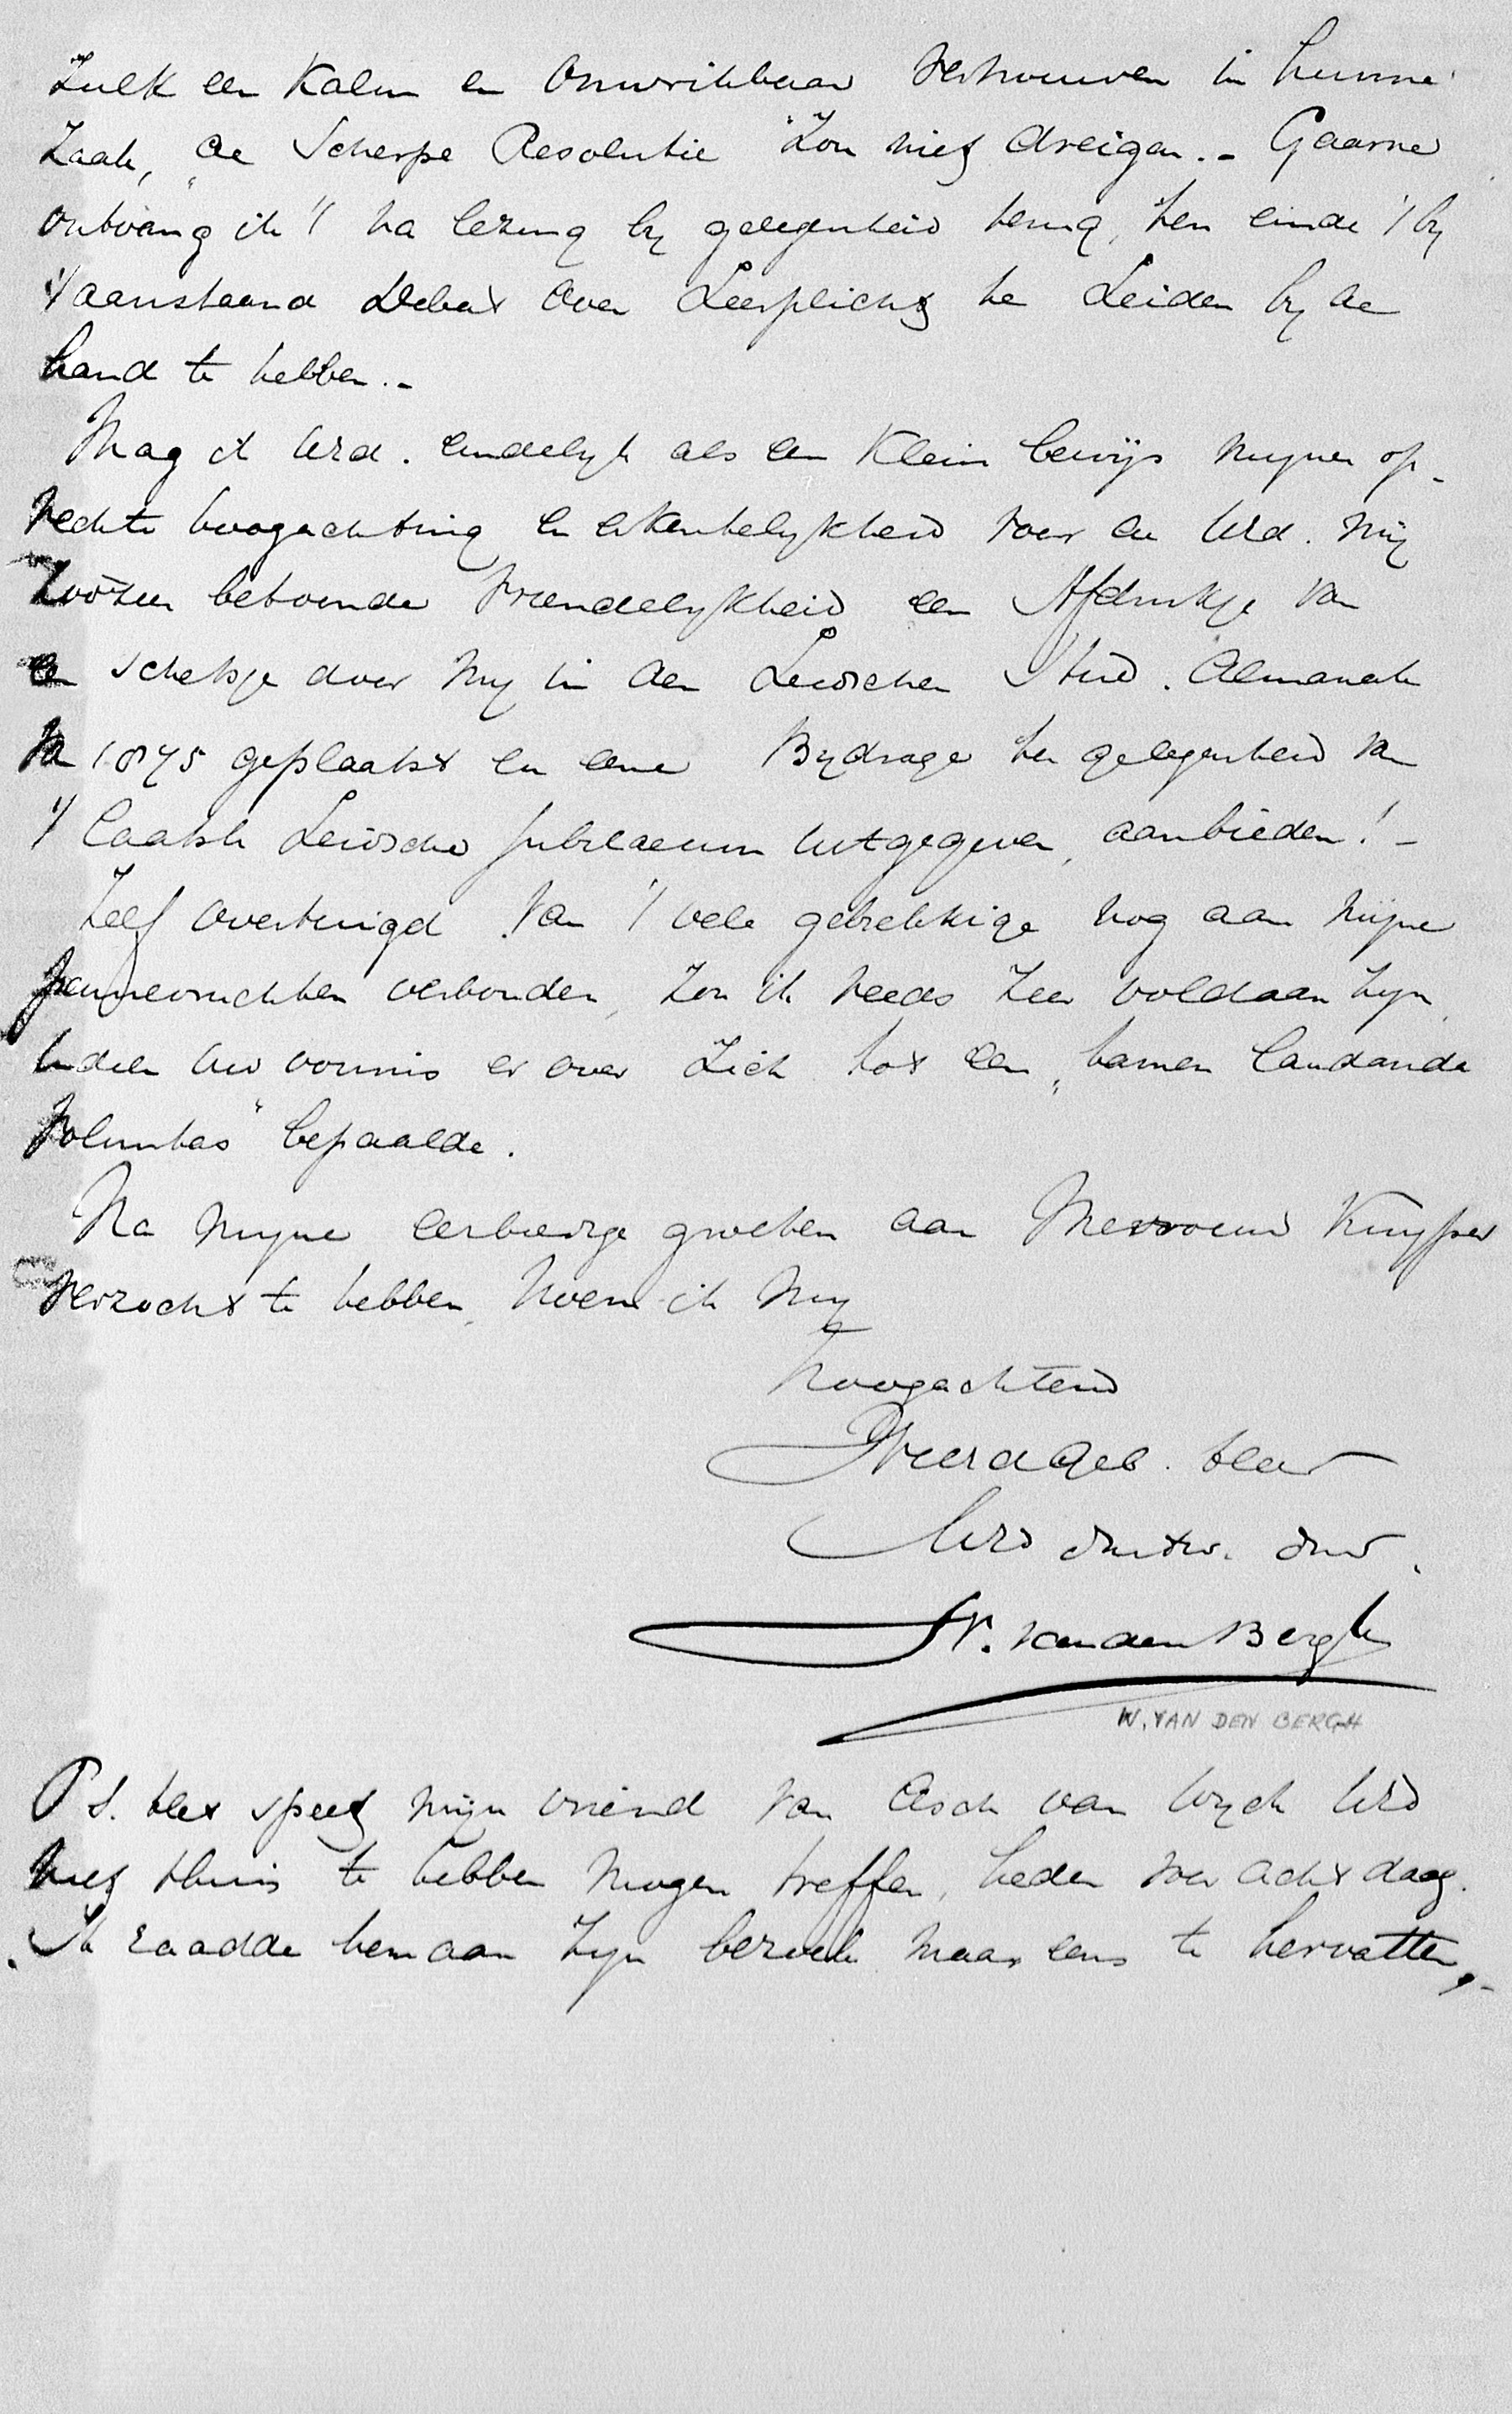 Zulk een kalm en onwrikbaar vertrouwen in hunne
zaak, „de scherpe Resolutie" zou niet dreigen.- Gaarne
ontvang ik 't na lezing by gelegenheid terug, ten einde 't by
't aanstaand debat over Leerplicht te Leiden by de
hand te hebben.-
Mag ik UEd. eindelyk als een klein bewijs mijner op-
rechte hoogachting en erkentelykheid voor de UEd. mij
zoózeer betoonde vriendelykheid een Afdrukje van
een schetsje door my in den Leidschen Stud. Almanak
van 1875 geplaatst en eene Bydrage ter gelegenheid van
't laatste Leidsche Jubilaeum uitgegeven, aanbieden! -
Zelf overtuigd van 't vele gebrekkige nog aan mijne
pennevruchten verbonden, zou ik reeds zeer voldaan zyn,
indien uw vonnis er over zich tot een „tamen laudanda
voluntas" bepaalde.
Na myne eerbiedige groeten aan Mevrouw Kuyper
verzocht te hebben, noem ik my
hoogachtend
WeledGeb. Heer
UEd dw. dnr.
W. van den Bergh
W. VAN DEN BERGH
PS. Het speet mijn vriend van Asch van Wyck UEd
niet thuis te hebben mogen treffen, heden voor acht daag.
Ik raadde hem aan zyn bezoek maar eens te hervatten.-